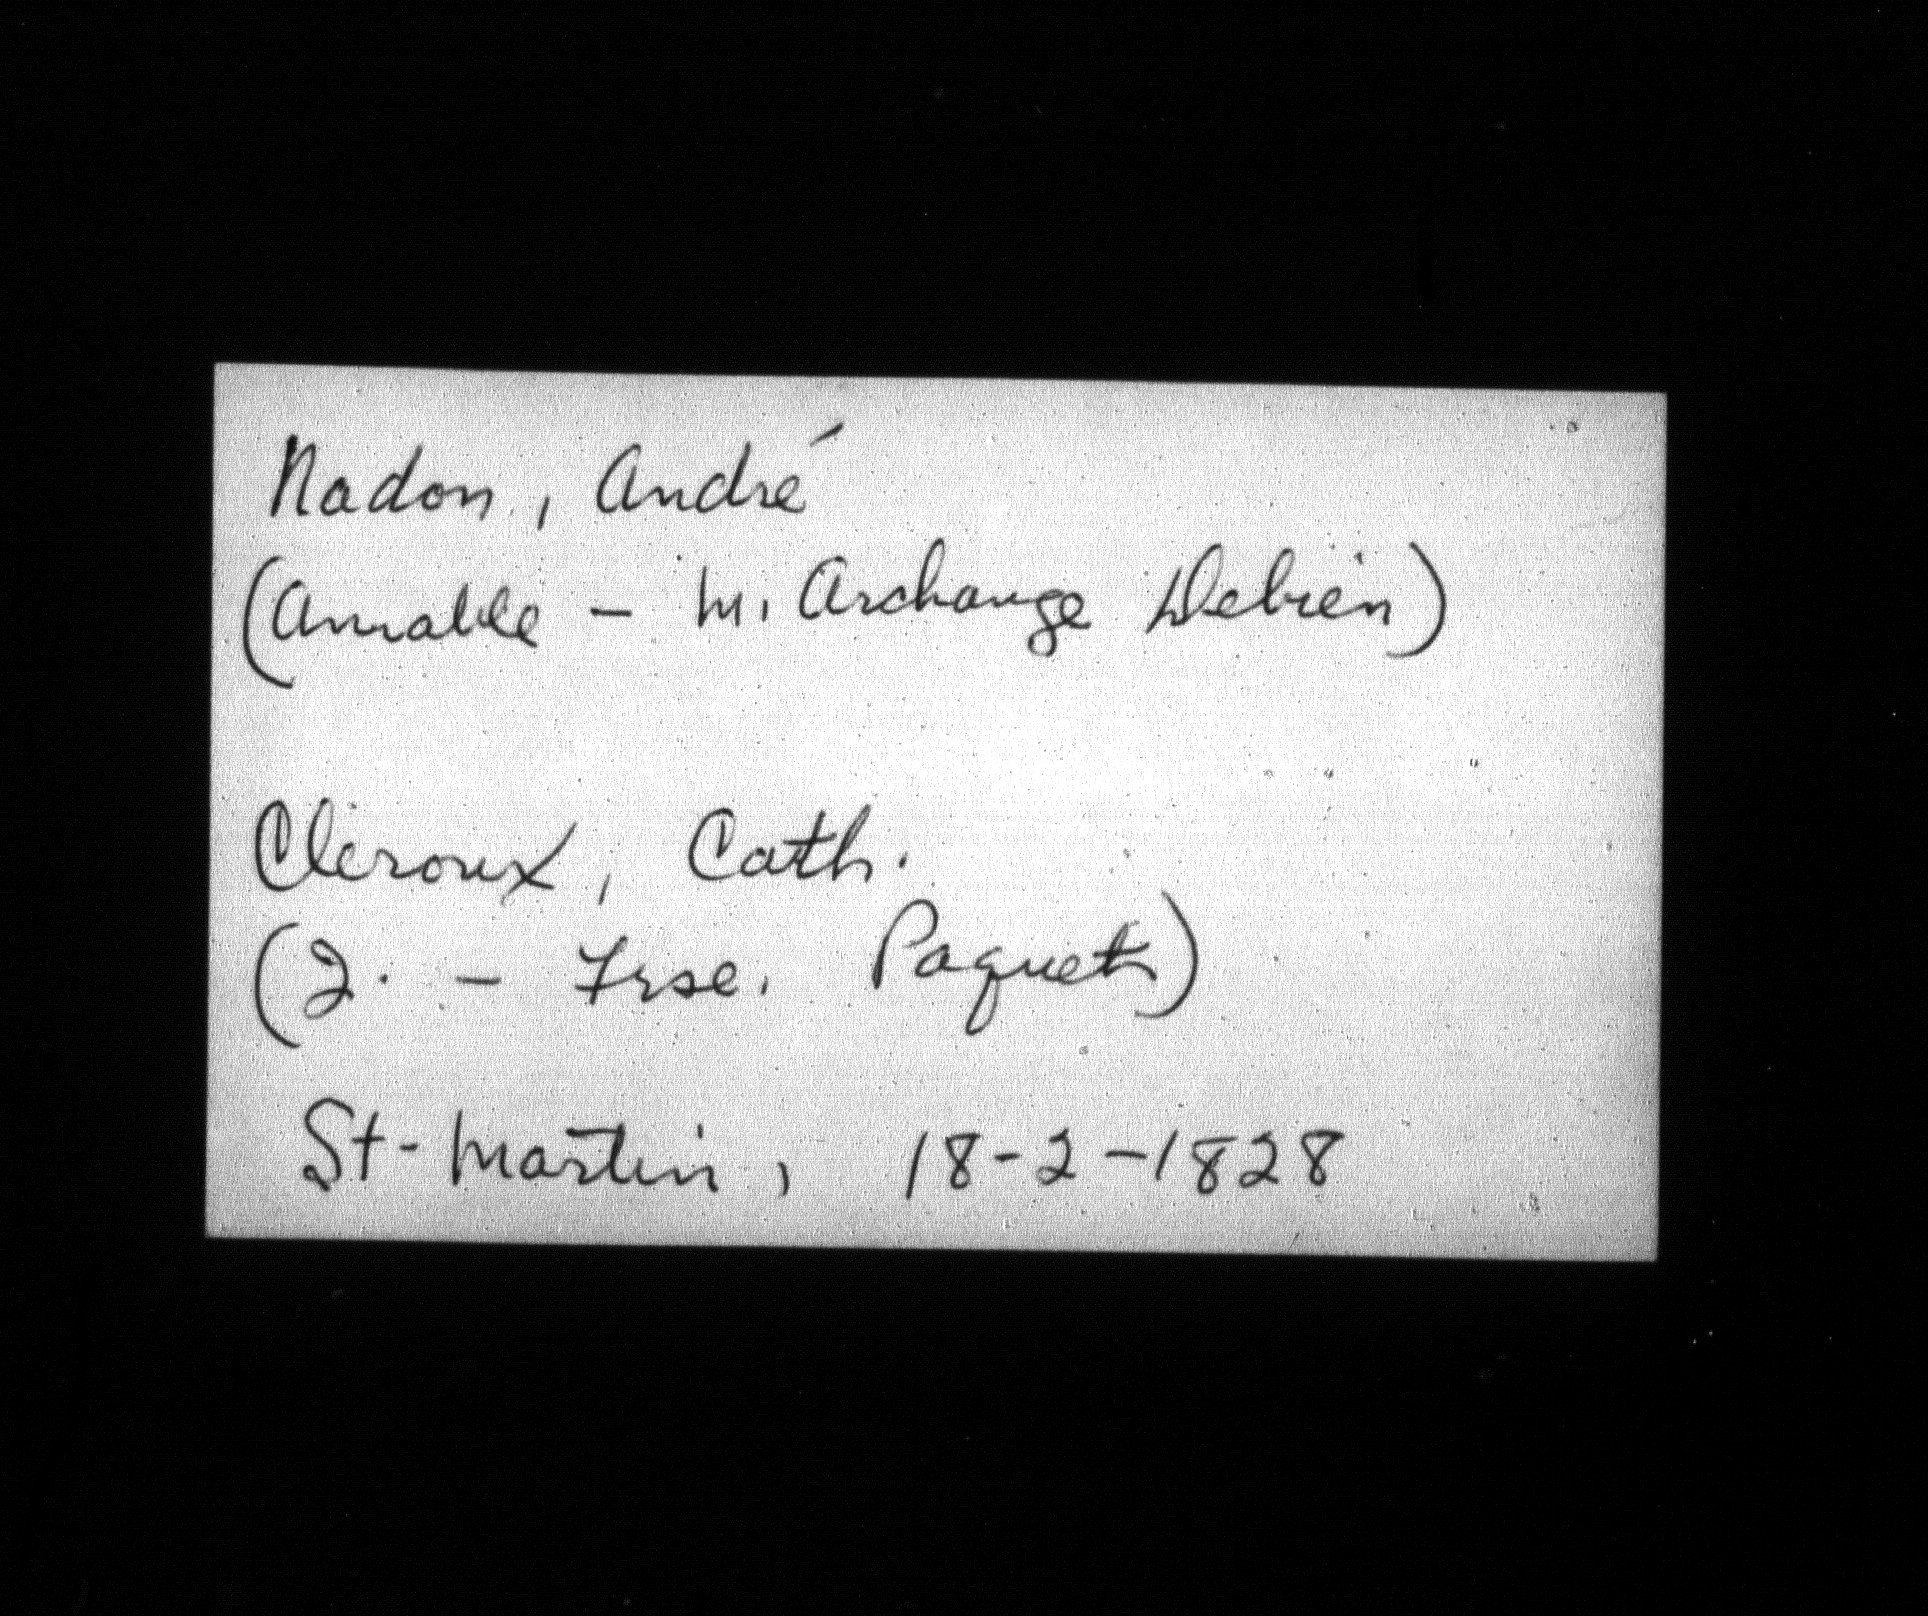 Nadon, André
(Amable - M. Archange Debien)
Cléroux, Cath.
(J. - Frse. Paquet)
St-Martin, 18-2-1828